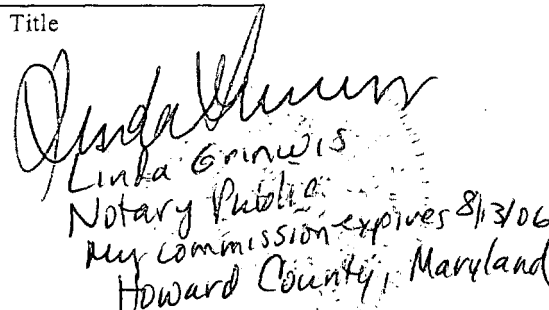 Title
Linda Grinwis
Linda Grinwis
Notary Public
My commission expires 8/13/06
Howard County, Maryland